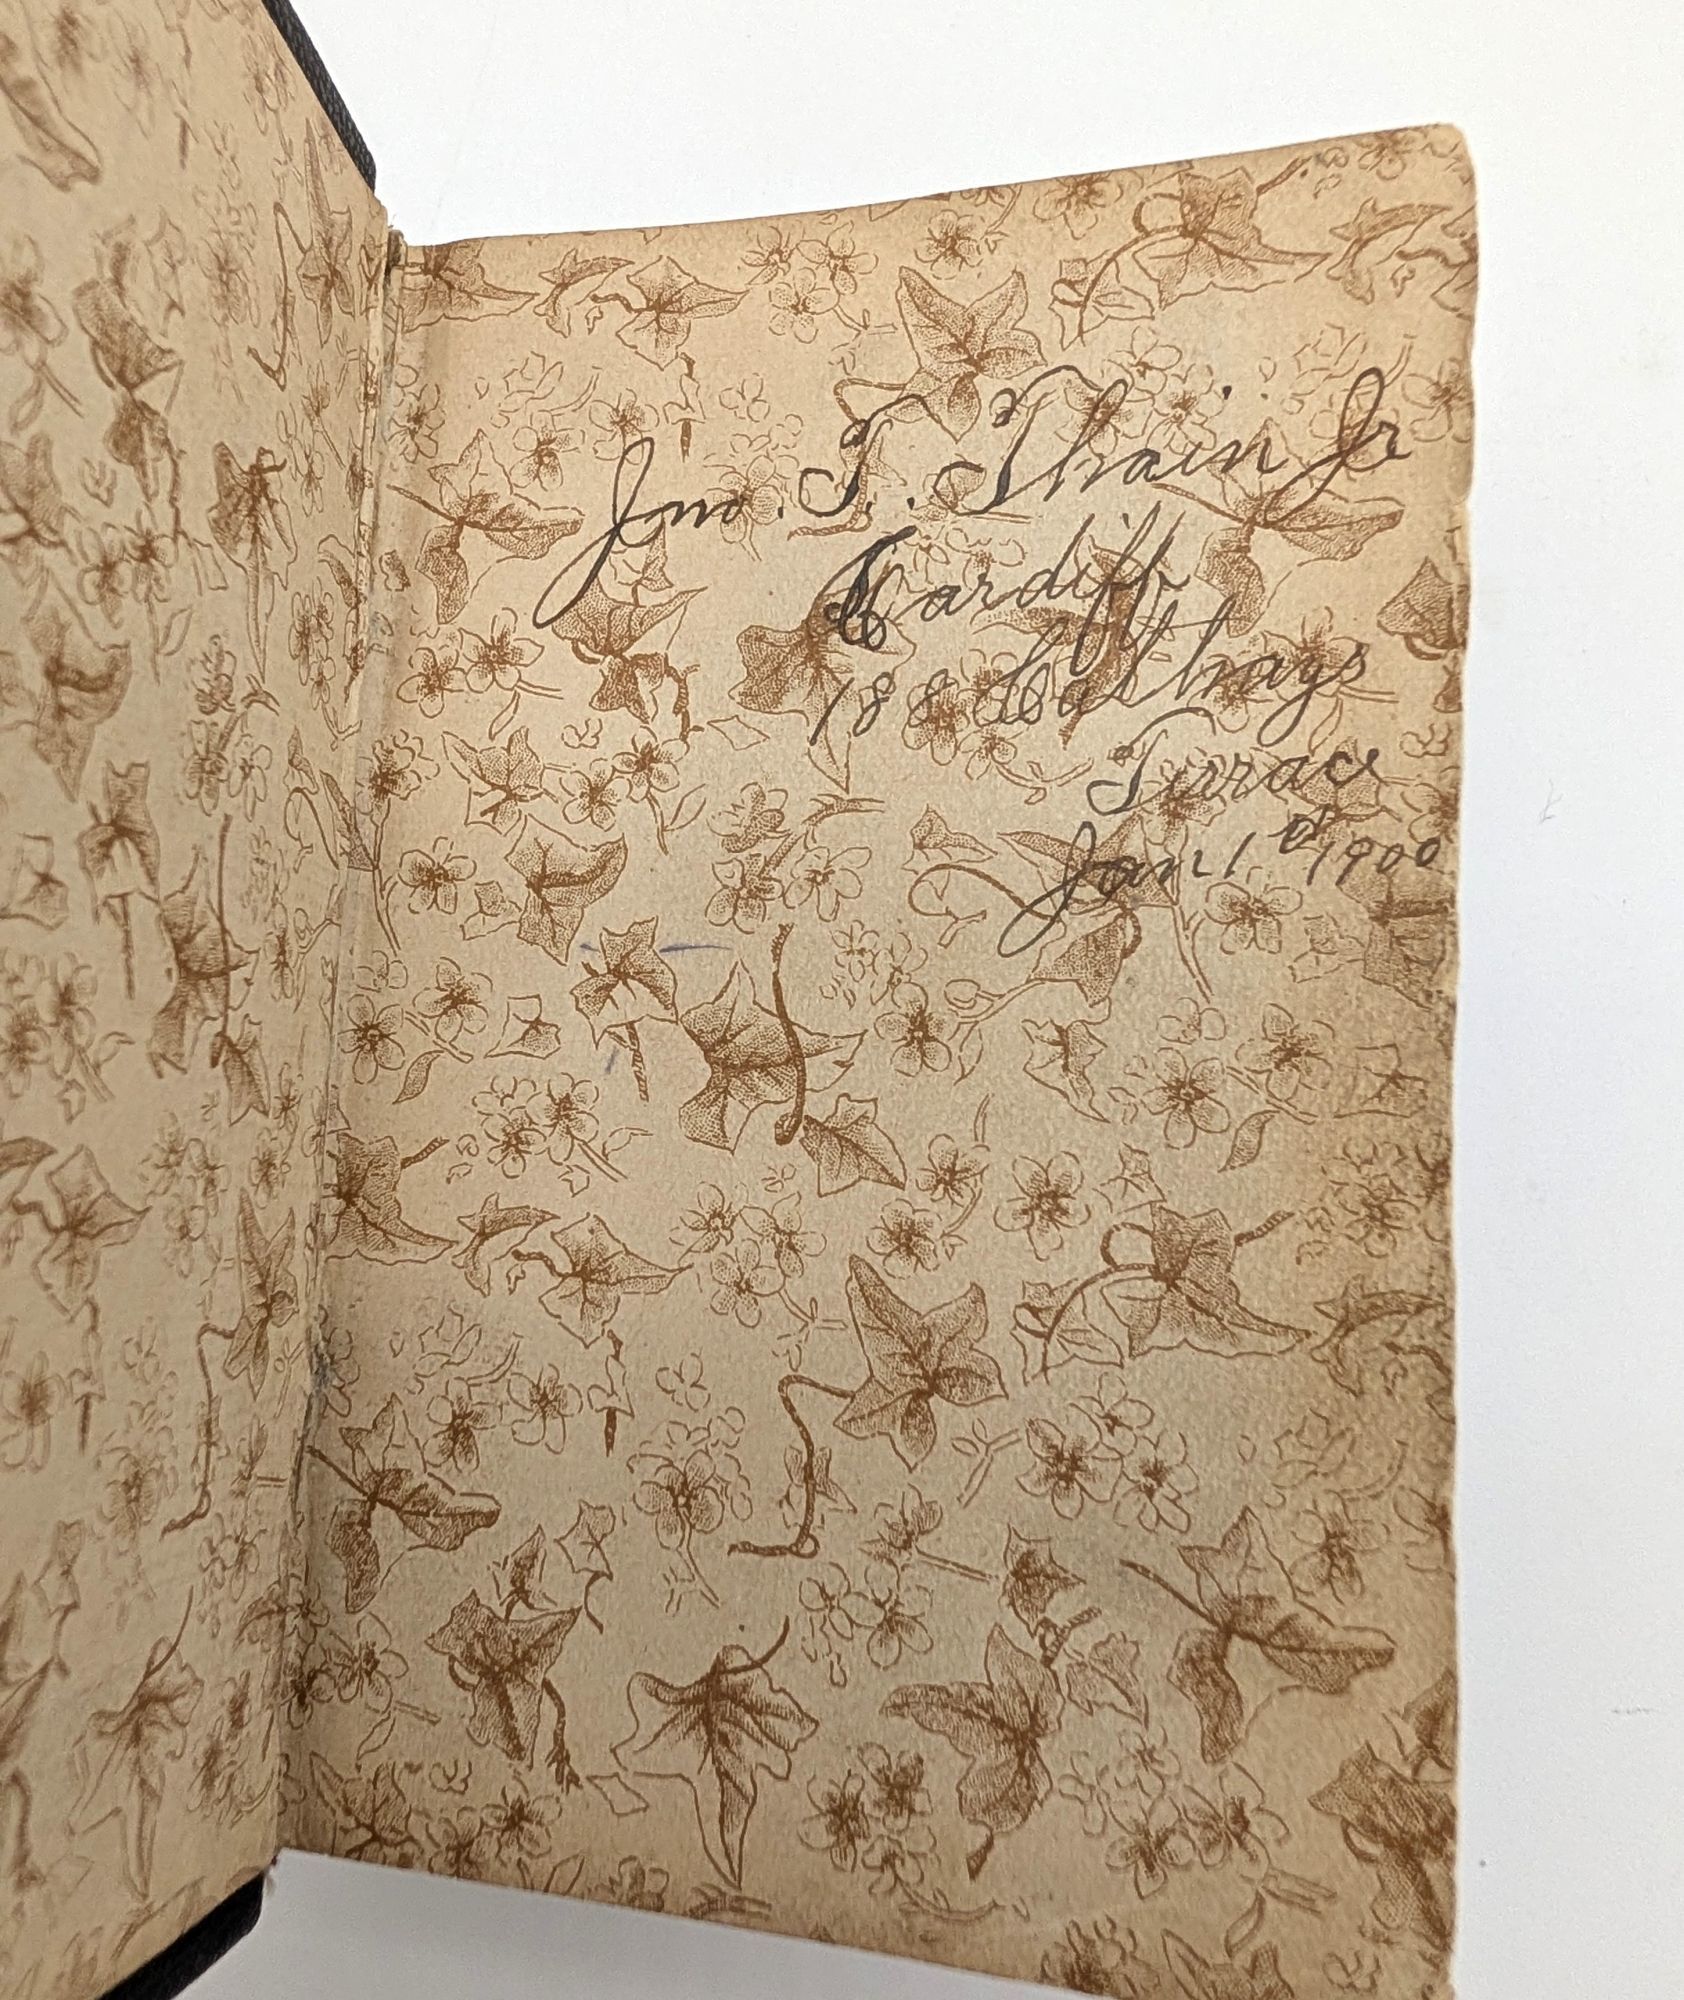 Jno. T. Thrain Jr
Cardiff
188 Cathays
Terrace
Jan 1st 1900